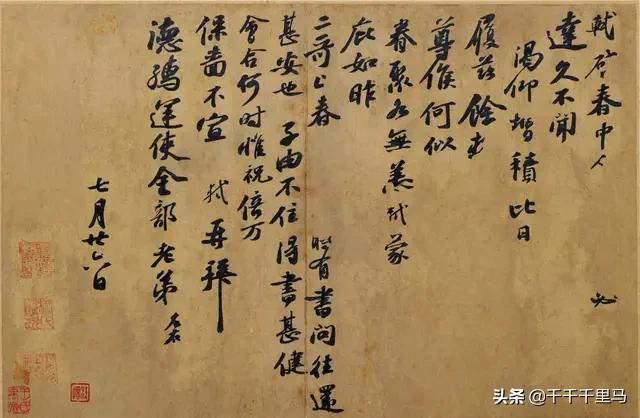 軾啓春中 必
達久不聞
渴仰增積比日
履茲餘
尊候何似
眷聚各無恙軾蒙
庇如昨
二哥上春 時有書問往還
甚安也 子由不住得書甚健
會合何時惟祝倍万
保嗇不宣 軾再拜
德孺運使金部老弟 左右
七月廿六日
头条 @千千千里马